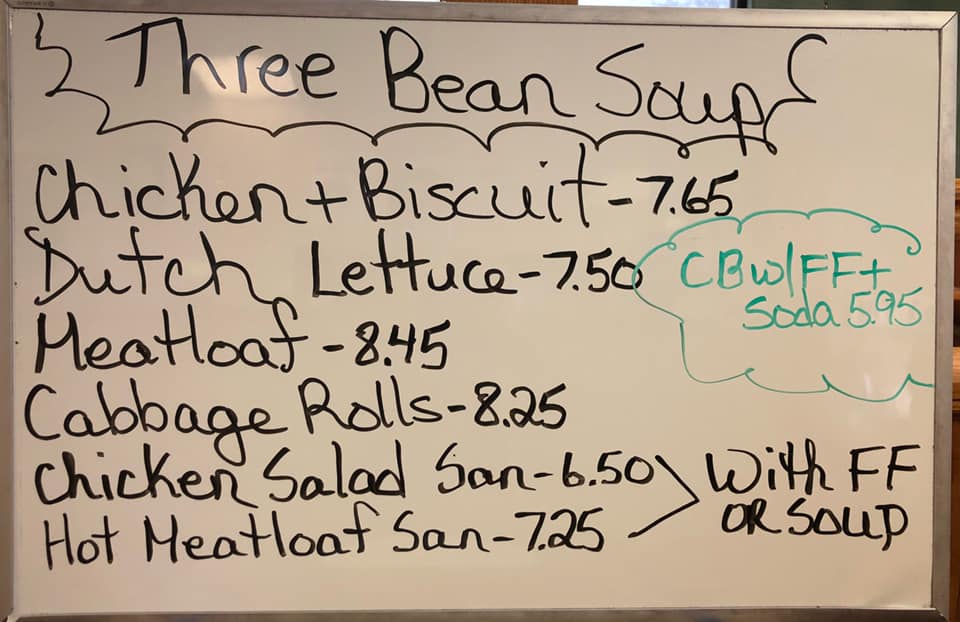 Three Bean Soup
Chicken + Biscuit - 7.65
Dutch Lettuce - 7.50
CB w/ FF +
Soda 5.95
Meatloaf - 8.45
Cabbage Rolls - 8.25
Chicken Salad San - 6.50
Hot Meatloaf San - 7.25
With FF
OR SOUP